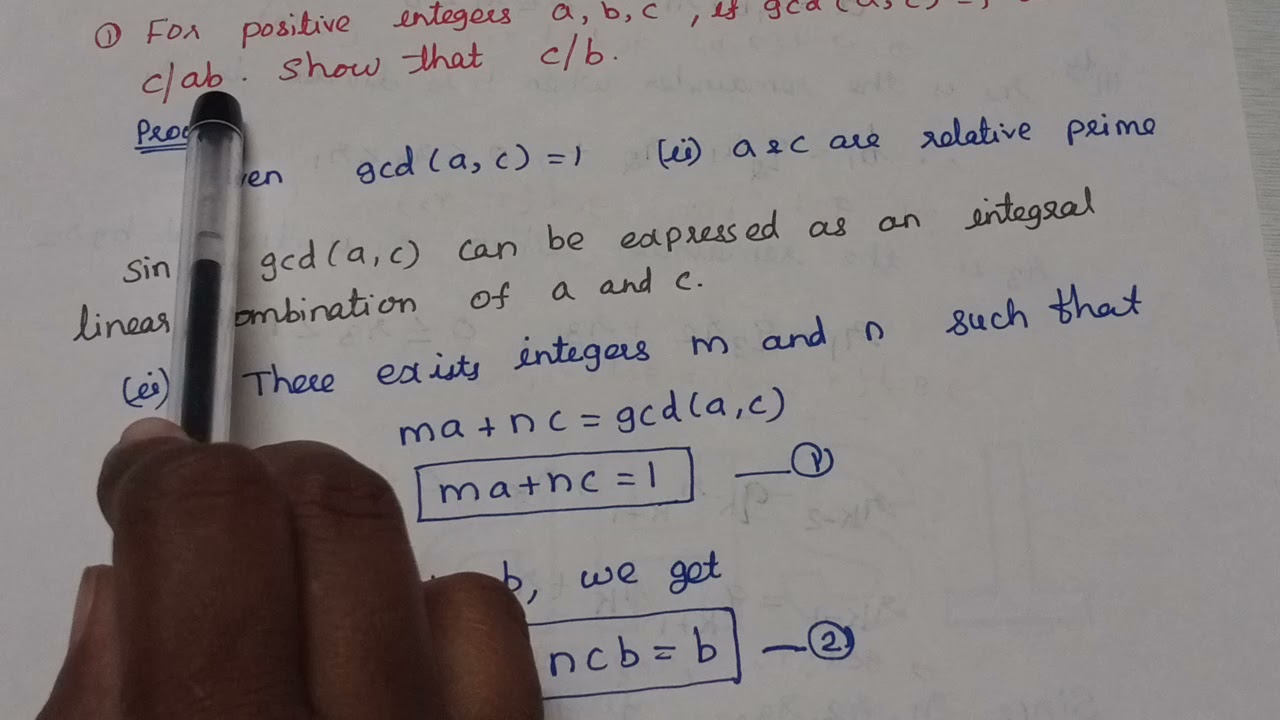 ① For positive integers a, b, c , if gcd(a, c) =
c/ab. show that c/b.
gcd(a, c) = 1 (ii) a & c are relative prime
gcd(a, c) can be expressed as an integral
linear of a and c.
(ii) There exists integers m and n such that
ma + nc = gcd(a, c)
ma + nc = 1 — ①
b, we get
ncb = b — ②